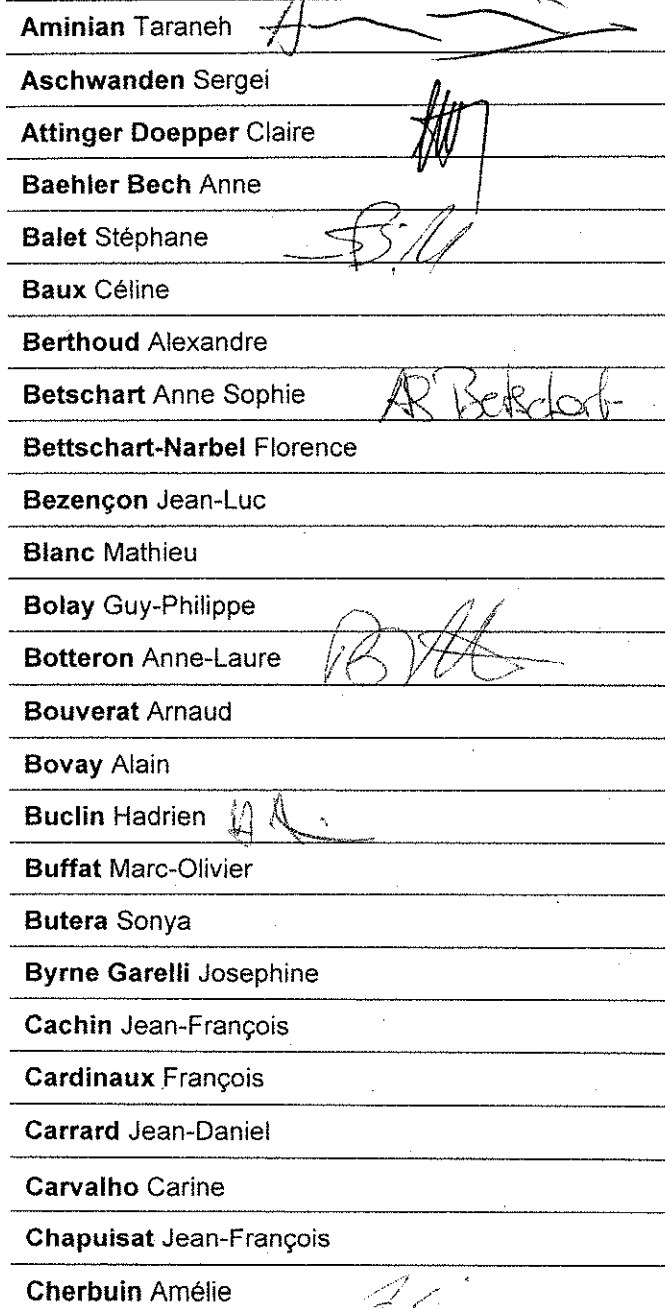 Aminian Taraneh
Aschwanden Sergei
Attinger Doepper Claire
Baehler Bech Anne
Balet Stéphane
Baux Céline
Berthoud Alexandre
Betschart Anne Sophie
Bettschart-Narbel Florence
Bezençon Jean-Luc
Blanc Mathieu
Bolay Guy-Philippe
Botteron Anne-Laure
Bouverat Arnaud
Bovay Alain
Buclin Hadrien
Buffat Marc-Olivier
Butera Sonya
Byrne Garelli Josephine
Cachin Jean-François
Cardinaux François
Carrard Jean-Daniel
Carvalho Carine
Chapuisat Jean-François
Cherbuin Amélie